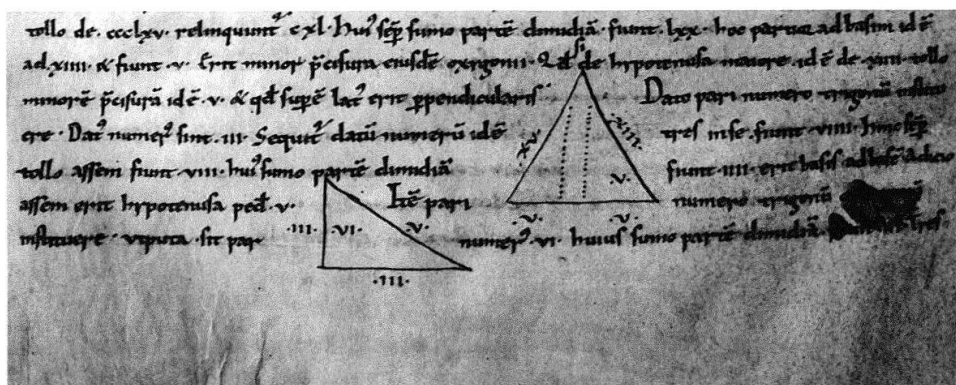 tollo de . ccclxv . relinquunt̄ cxl . Hui᾽ sēp sumo partē dimidiā . fiunt . lxx . hoc partior ad basim id ē
ad . xiiii . & fiunt . v . Erit minor p̄cisura eiusdē oxigonii . Qđ si de hypotenusa maiore . id ē de . xiiii . tollo
minorē p̄cisurā id ē . v . & qđ supē lat᾽ erit ppendicularis Dato pari numero trigonū
ere . Dat᾽ numer᾽ sint . iii . Sequit̄ datū numerū id ē tres in se . fiunt . viiii . hinc sēp
tollo assem fiunt . viii . hui᾽ sumo partē dimidiā fiunt . iiii . erit basis ad basē adicio
assem erit hypotenusa ped̄ . v . Itē pari numero trigonū
instituere . utputa . sit par numer᾽ . vi . huius sumo partē dimidiā tres .
xv xiii
. v .
. v . . v .
. iii . . vi . . v .
. iii .